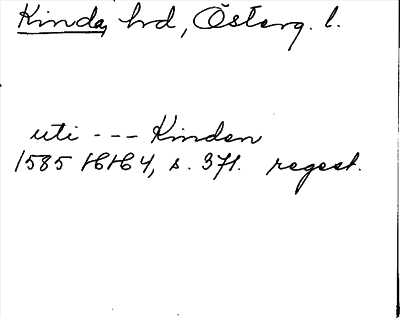 Kinda, hd, Österg. l.
uti --- Kinden
1585 HH 4, s. 371. regest.